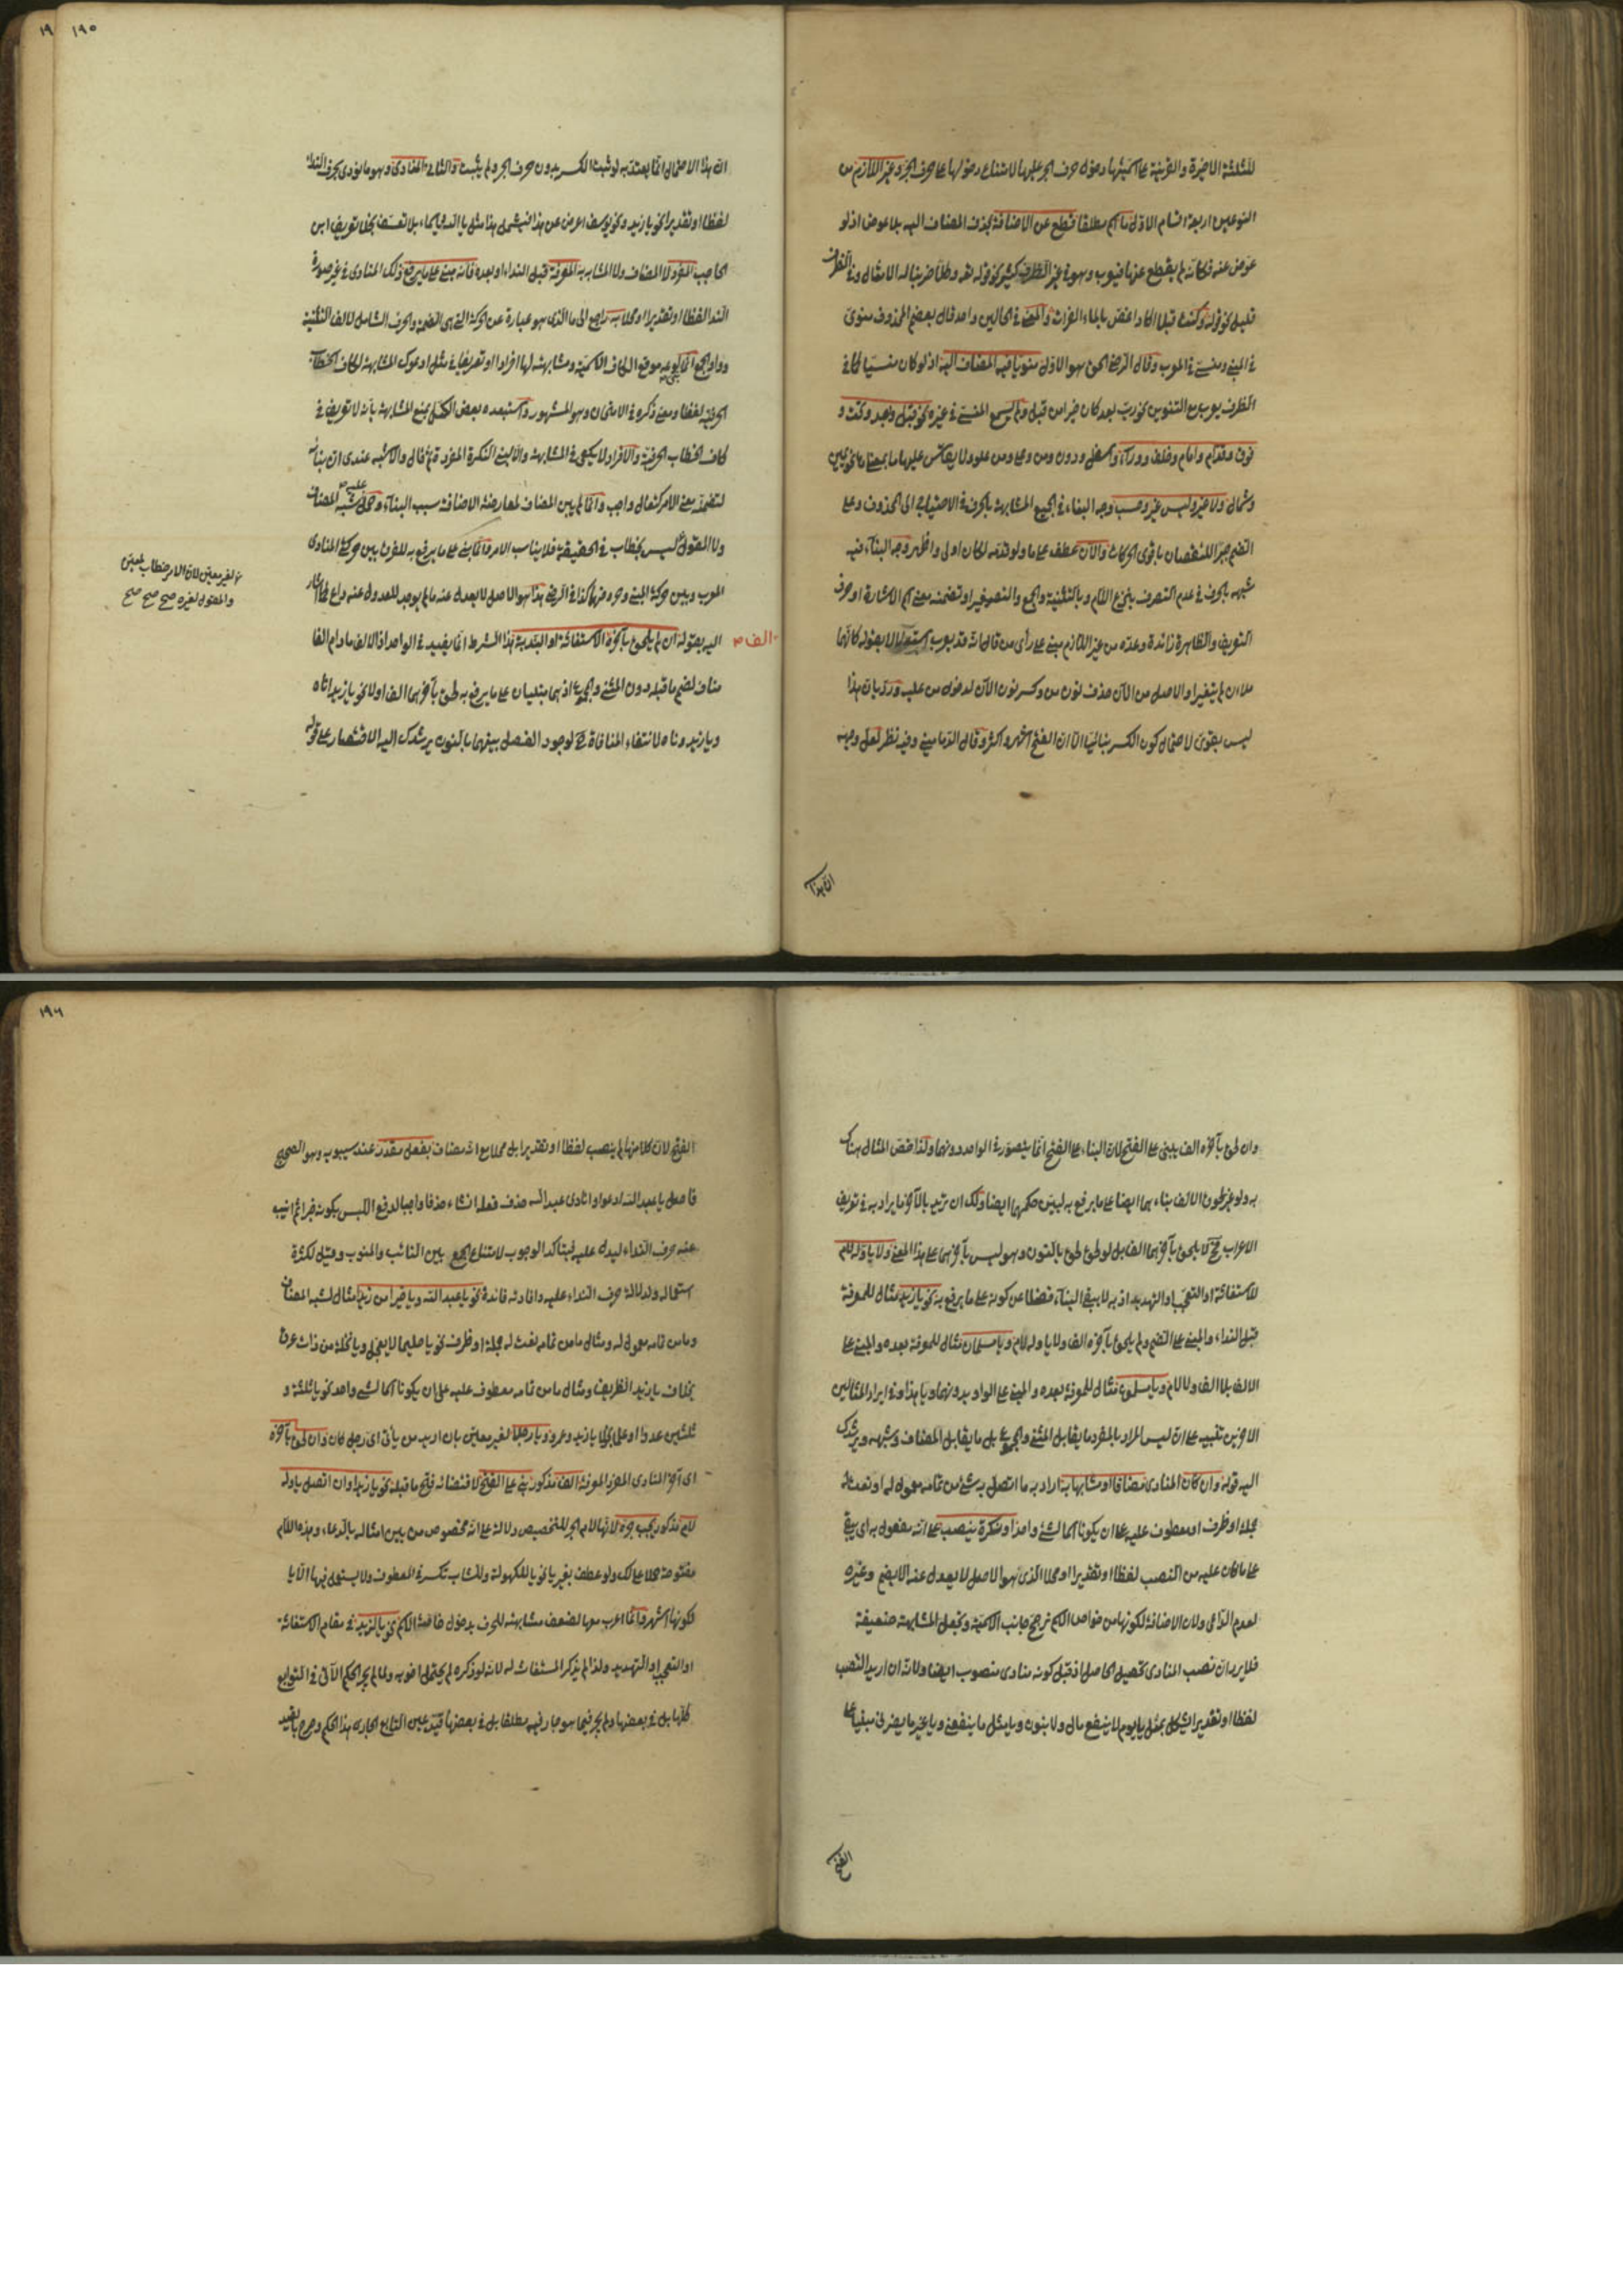 للثلثة الاخيرة والقرينة على اسميتها دخول حرف الجر عليها لامتناع دخولها على حرف الجر وغير اللازم من
النوعين اربعة اقسام الاول ما اسم مطلقا قطع عن الاضافة بحذف المضاف اليه بلا عوض اذ لو
عوض عنه فكانه لم يقطع عنها فيعرب وهو في غير الظرف كثير نحو قوله تعالى وكلا ضربنا له الامثال وفي الظرف
قليل نحو قوله وكنت قبلا اكاد اغص بالماء الفرات والمعنى في الحالين واحد قال بعضهم المحذوف منوى
في المبنى ومنسى في المعرب وقال الرضى الحق هو الاول منويا فيه المضاف اليه اذ لو كان منسيا كما في
الظرف يعرب مع التنوين نحو رب بعد كان خيرا من قبل ولم يسمع المنسى في غيره نحو قبل وبعد وتحت و
فوق وقدام وامام وخلف ووراء واسفل ودون ومن وعل ومن علو ولا يقاس عليها ما بمعناها نحو يمين
وشمال ولا غير وليس غير وحسب وجه البناء في الجميع المشابهة بالحرف في الاحتياج الى المحذوف وعلى
الضم جبرا للنقصان باقوى الحركات والآن عطف على ما ولو قدمه لكان اولى واظهر وجه البناء فيه
شبهه بالحرف في عدم التصرف بنزع اللام وبالتثنية والجمع والتصغير او تضمنه معنى اسم الاشارة او حرف
التعريف والظاهرة زائدة وعده من غير اللازم مبنى على رأى من قال انه قد يعرب استدلالا بقوله كانهما
ملآن لم يتغيرا والاصل من الآن حذف نون من وكسر نون الآن لدخول من عليه ورد بان هذا
ليس بقوى لاحتمال كون الكسر بنائيا الا ان الفتح اشهر واكثر وقال الدمامينى وفيه نظر لعل وجهه
ان هذا
١٩٥
ان هذا الاحتمال انما يعتد به لو ثبت الكسر بدون حرف الجر ولم يثبت والثانى المنادى وهو ما نودى بحرف النداء
لفظا او تقديرا نحو يا زيد ونحو يوسف اعرض عن هذا فيشمل هذا مثل يا الله يا سماء بلا تعسف بخلاف تعريف ابن
الحاجب المفرد لا المضاف ولا المشابه به المعرفة قبل النداء او بعده فانه مبنى على ما يرفع ذلك المنادى في غير صورة
النداء لفظا او تقديرا او محلا به راجع الى ما الذى هو عبارة عن الحركة التى هى الضمة والحرف الشامل لالف التثنية
وواو الجمع انما بنى لوقوعه موقع الكاف الاسمية ومشابهته لها افرادا وتعريفا في مثل ادعوك المشابهة لكاف الخطاب
الحرفية لفظا ومعنى ذكره في الامتحان وهو المشهور واستبعده بعض الكمل بمنع المشابهة بانه لا تعريف في
كاف الخطاب الحرفية والافراد لا يكفى في المشابهة والا لبنى النكرة المفردة ثم قال والاشبه عندى ان بناءه
لتضمنه معنى الامر كنعال واجب وانما لم يبن المضاف لمعارضة الاضافة سبب البناء وحمل عليه شبه المضاف
ولا المقول ليس بخطاب في الحقيقة فلا يناسب الامر فانما بنى على ما يرفع به للفرق بين حركة المنادى
لغير معين لان الامر خطاب لمعين
والمقول لغيره صح صح صح
المعرب وبين حركة المبنى وحروفها كذا في الرضى هذا هو الاصل لا يعدل عنه ما لم يوجد للعدول عنه داع كما اشار
اليه بقوله ان لم يلحق بآخره الف الاستغاثة او الندبة هذا الشرط انما يفيد في الواحد اذ الالف ما دام الفا
مناف لضم ما قبله دون المثنى والجمع اذ هما يبنيان على ما يرفع به لحق بآخرهما الف اولا نحو يا زيداناه
ويا زيدوناه لانتفاء المنافاة ح لوجود الفصل بينهما بالنون يرشدك اليه الاقتصار على قوله
وان لحق بآخره الف يبنى على الفتح لان البناء على الفتح انما يتصور في الواحد دونهما ولذا خص المثال هناك
به ولو غير لحوق الالف بناءهما ايضا على ما يرفع به لبين حكمهما ايضا ولك ان تريد بالآخر ما يراد به في تعريف
الاعراب فح لا يلحق بآخرهما الف بل لو لحق لحق بالنون وهو ليس بآخرهما على هذا المعنى ولا باوله لام
الاستغاثة او التعجب او التهديد اذ به لا يبقى البناء فضلا عن كونه على ما يرفع به نحو يا زيد مثال للمعرفة
قبل النداء والمبنى على الضم ولم يلحق بآخره الف ولا باوله لام ويا مسلمان مثال للمعرفة بعده والمبنى على
الالف بلا الف ولا لام ويا مسلمون مثال للمعرفة بعده والمبنى على الواو بدونهما ويا هذا وفي ايراد المثالين
الاخرين تنبيه على انه ليس المراد بالمفرد ما يقابل المثنى والمجموع بل ما يقابل المضاف وشبهه ويرشدك
اليه قوله وان كان المنادى مضافا او مشابها به اراد به ما اتصل به شئ من تمامه معمول له او نعت له
جملة او ظرف او معطوف عليه على ان يكونا اسما لشئ واحد او نكرة ينصب على انه مفعول به اى يبقى
على ما كان عليه من النصب لفظا او تقديرا او محلا الذى هو الاصل لا يعدل عنه الا بضم وغيره
لعدم الداعى ولان الاضافة لكونها من خواص الاسم ترجح جانب الاسمية وتجعل المشابهة ضعيفة
فلا يرد ان نصب المنادى تحصيل الحاصل اذ قبل كونه منادى منصوب ايضا ولا انه ان اريد النصب
لفظا او تقديرا يشكل بمثل يا يوم لا ينفع مال ولا بنون ويا مثل ما ينفعنى ويا غير ما يضرنى مبنيا على
الفتح
١٩٦
الفتح لان كلا منها لم ينصب لفظا او تقديرا بل محلا مع انه مضاف بفعل مقدر عند سيبويه وهو الصحيح
فاصل يا عبد الله ادعو او انادى عبد الله حذف فعل انشاء حذفا واجبا لدفع اللبس بكونه خبرا ثم انيب
عنه حرف النداء ليدل عليه فيتأكد الوجوب لامتناع الجمع بين النائب والمنوب وقيل لكثرة
استعماله ولدلالة حرف النداء عليه وافادته فائدة نحو يا عبد الله ويا خيرا من زيد مثال لشبه المضاف
وما من تمامه معمول له ومثال ما من تمامه نعت له جملة او ظرف نحو يا حليما لا يعجل ويا نخلة من ذات عرق
بخلاف يا زيد الظريف ومثال ما من تمامه معطوف عليه على ان يكونا اسما لشئ واحد نحو يا ثلثة و
ثلثين عددا او علما بخلاف يا زيد وعمرو ويا رجلا لغير معين بان اريد من يأتى اى رجل كان وان لحق بآخره
اى آخر المنادى المفرد المعرفة الف مذكور بنى على الفتح لاقتضائه فتح ما قبله نحو يا زيدا وان اتصل باوله
لام مذكور يجب جره لانها لام الجر للتخصيص دلالة على انه مخصوص من بين امثاله بالدعاء وهذه اللام
مفتوحة حملا على لك ولو عطف بغير يا نحو يا للكهول وللشاب تكسر في المعطوف ولا يستعمل فيها الا يا
لكونها اشهر فانما اعرب معها لضعف مشابهته للحرف بدخول خاصة الاسم نحو يا لزيد في مقام الاستغاثة
او التعجب او التهديد ولذا لم يذكر المستغاث له لانه لو ذكره لم يحتمل اخويه ولما لم يجر الحكم الآتى في التوابع
كلها بل في بعضها ولم يجر فيما هو جار فيه مطلقا بل في بعضها قيد عين التابع الجارى هذا الحكم وصرح بالقيد